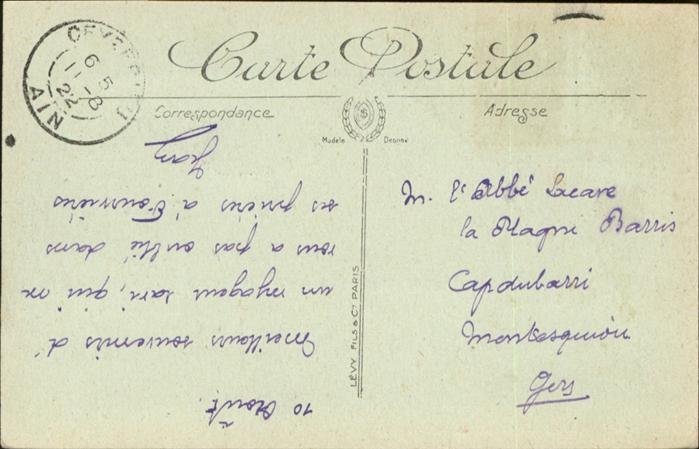 Carte Postale
Correspondance
Adresse
Modèle Déposé
10 Août.
Meilleurs souvenirs d'
un voyageur ravi, qui ne
vous a pas oublié dans
ses prières à Fourvières
Jean
M. l'Abbé Lacave
la Plagne Barris
Capdubarri
Montesquiou
Gers
LÉVY FILS & Cie PARIS
6 5
11-8
22
AIN